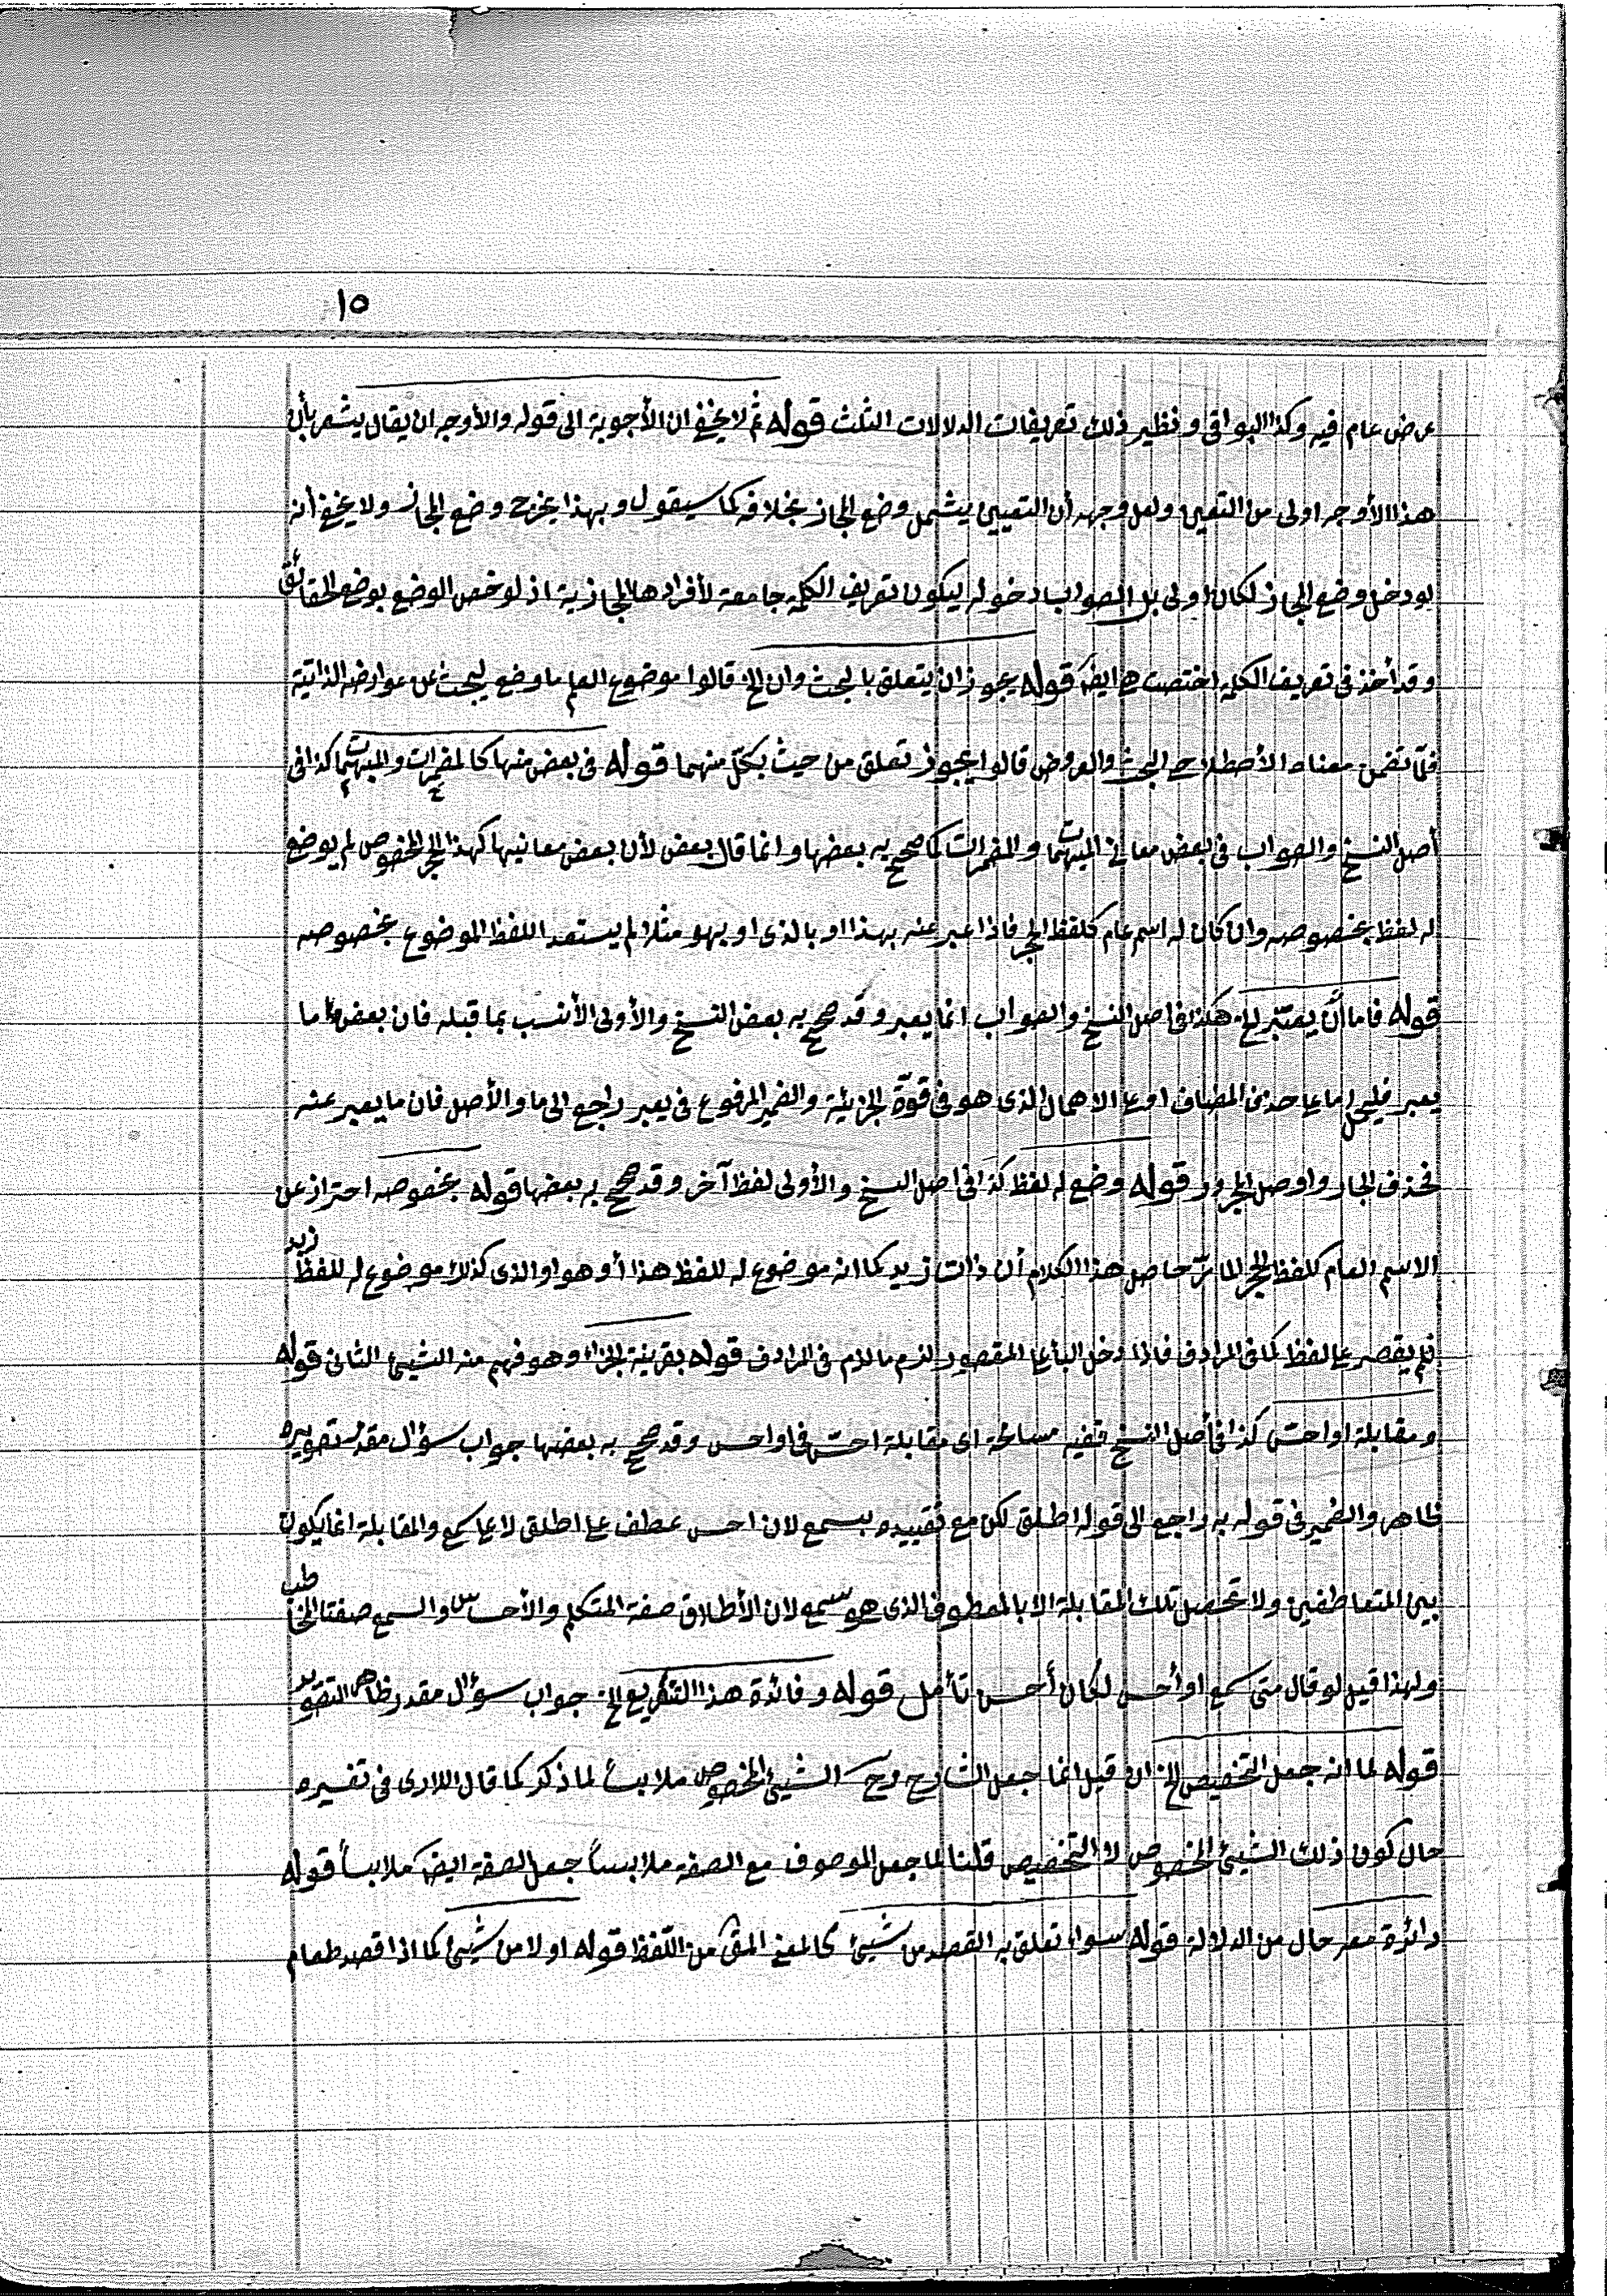 ١٥
عرض عام فيه وكذا البواقى ونظير ذلك تعريفات الدلالات الثلث قوله ثم لا يخفى ان الأجوبة الى قوله والأوجه ان يقال يشعر بأن
هذا الأوجه اولى من التعين ولعل وجهه أن التعيين يشمل وضع المجاز بخلافه كما سيقول وبهذا يخرج وضع المجاز ولا يخفى أنه
لو دخل وضع المجاز لكان اولى بل الصواب دخوله ليكون تعريف الكلمة جامعة لأفرادها المجازية اذ لو خص الوضع بوضع الحقائق
وقد أخذ فى تعريف الكلمة اختصت هى ايضا قوله يجوز ان يتعلق بالبحث وان الخ قالوا موضوع العلم ما وضع ليبحث عن عوارضه الذاتية
فلما تضمن معناه الأصطلاحى البحث والعروض قالوا يجوز تعلق من حيث بكل منهما قوله فى بعض منها كالمضمرات والمبهمات كذا فى
أصل النسخ والصواب فى بعض معانى المبهمات والمضمرات كما صحح به بعضها وانما قال بعض لأن بعض معانيها كهذا الحجر المخصوص لم يوضع
له لفظ بخصوصه وان كان له اسم عام كلفظ الحجر فاذا عبر عنه بهذا او بالذى او بهو مثلا لم يستعد اللفظ الموضوع بخصوصه
قوله فاما أن يعتبر الخ هكذا فى اصل النسخ والصواب انما يعبر وقد صحح به بعض النسخ والأولى الأنسب بما قبله فان بعض ما
يعبر فليحمل اما على حذف المضاف او على الاهمال الذى هو فى قوة الجزئية والضمير المرفوع فى يعبر راجع الى ما والأصل فان ما يعبر عنه
فحذف الجار واوصل المجرور قوله وضع له لفظ كذا فى اصل النسخ والأولى لفظ آخر وقد صحح به بعضها قوله بخصوصه احتراز عن
الاسم العام كلفظ الحجر لما مرّ حاصل هذا الكلام أن ذات زيد كما انه موضوع له للفظ هذا أو هو او الذى كذلك موضوع له للفظ زيد
فلم يقصر على لفظ كما فى المرادف فاذا دخل البأ على المقصور لزم ما لزم فى المرادف قوله بقرينة الجزاء وهو فهم منه الشيئ الثانى قوله
ومقابلة او احسّ كذا فى أصل النسخ ففيه مسامحة اى مقابلة احسّ فى او احس وقد صحح به بعضها جواب سؤال مقدر تصويره
ظاهر والضمير فى قوله به راجع الى قوله اطلق لكن مع تقييده بسمع لان احس عطف على اطلق لا على سمع والمقابلة انما يكون
بين المتعاطفين ولا تحصل تلك المقابلة الا بالمعطوف الذى هو سمع لان الأطلاق صفة المتكلم والأحساس والسمع صفتا المخاطب
ولهذا قيل لو قال متى سمع او أحس لكان أحسن تأمل قوله وفائدة هذا التفريع الخ جواب سؤال مقدر ظاهر التصوير
قوله لما انه جعل التخصيص الخ ان قيل انما جعل الشارح رح الشيئ المخصوص ملابسا لما ذكر كما قال اللارى فى تفسيره
حال كون ذلك الشيئ المخصوص لا التخصيص قلنا لما جعل الموصوف مع الصفة ملابساً جعل الصفة ايضا ملابسأ قوله
دائرة معه حال من الدلالة قوله سواء تعلق به القصد من شيئ كالمعنى المقص من اللفظ قوله او لا من شيئ كما اذا قصد طعام